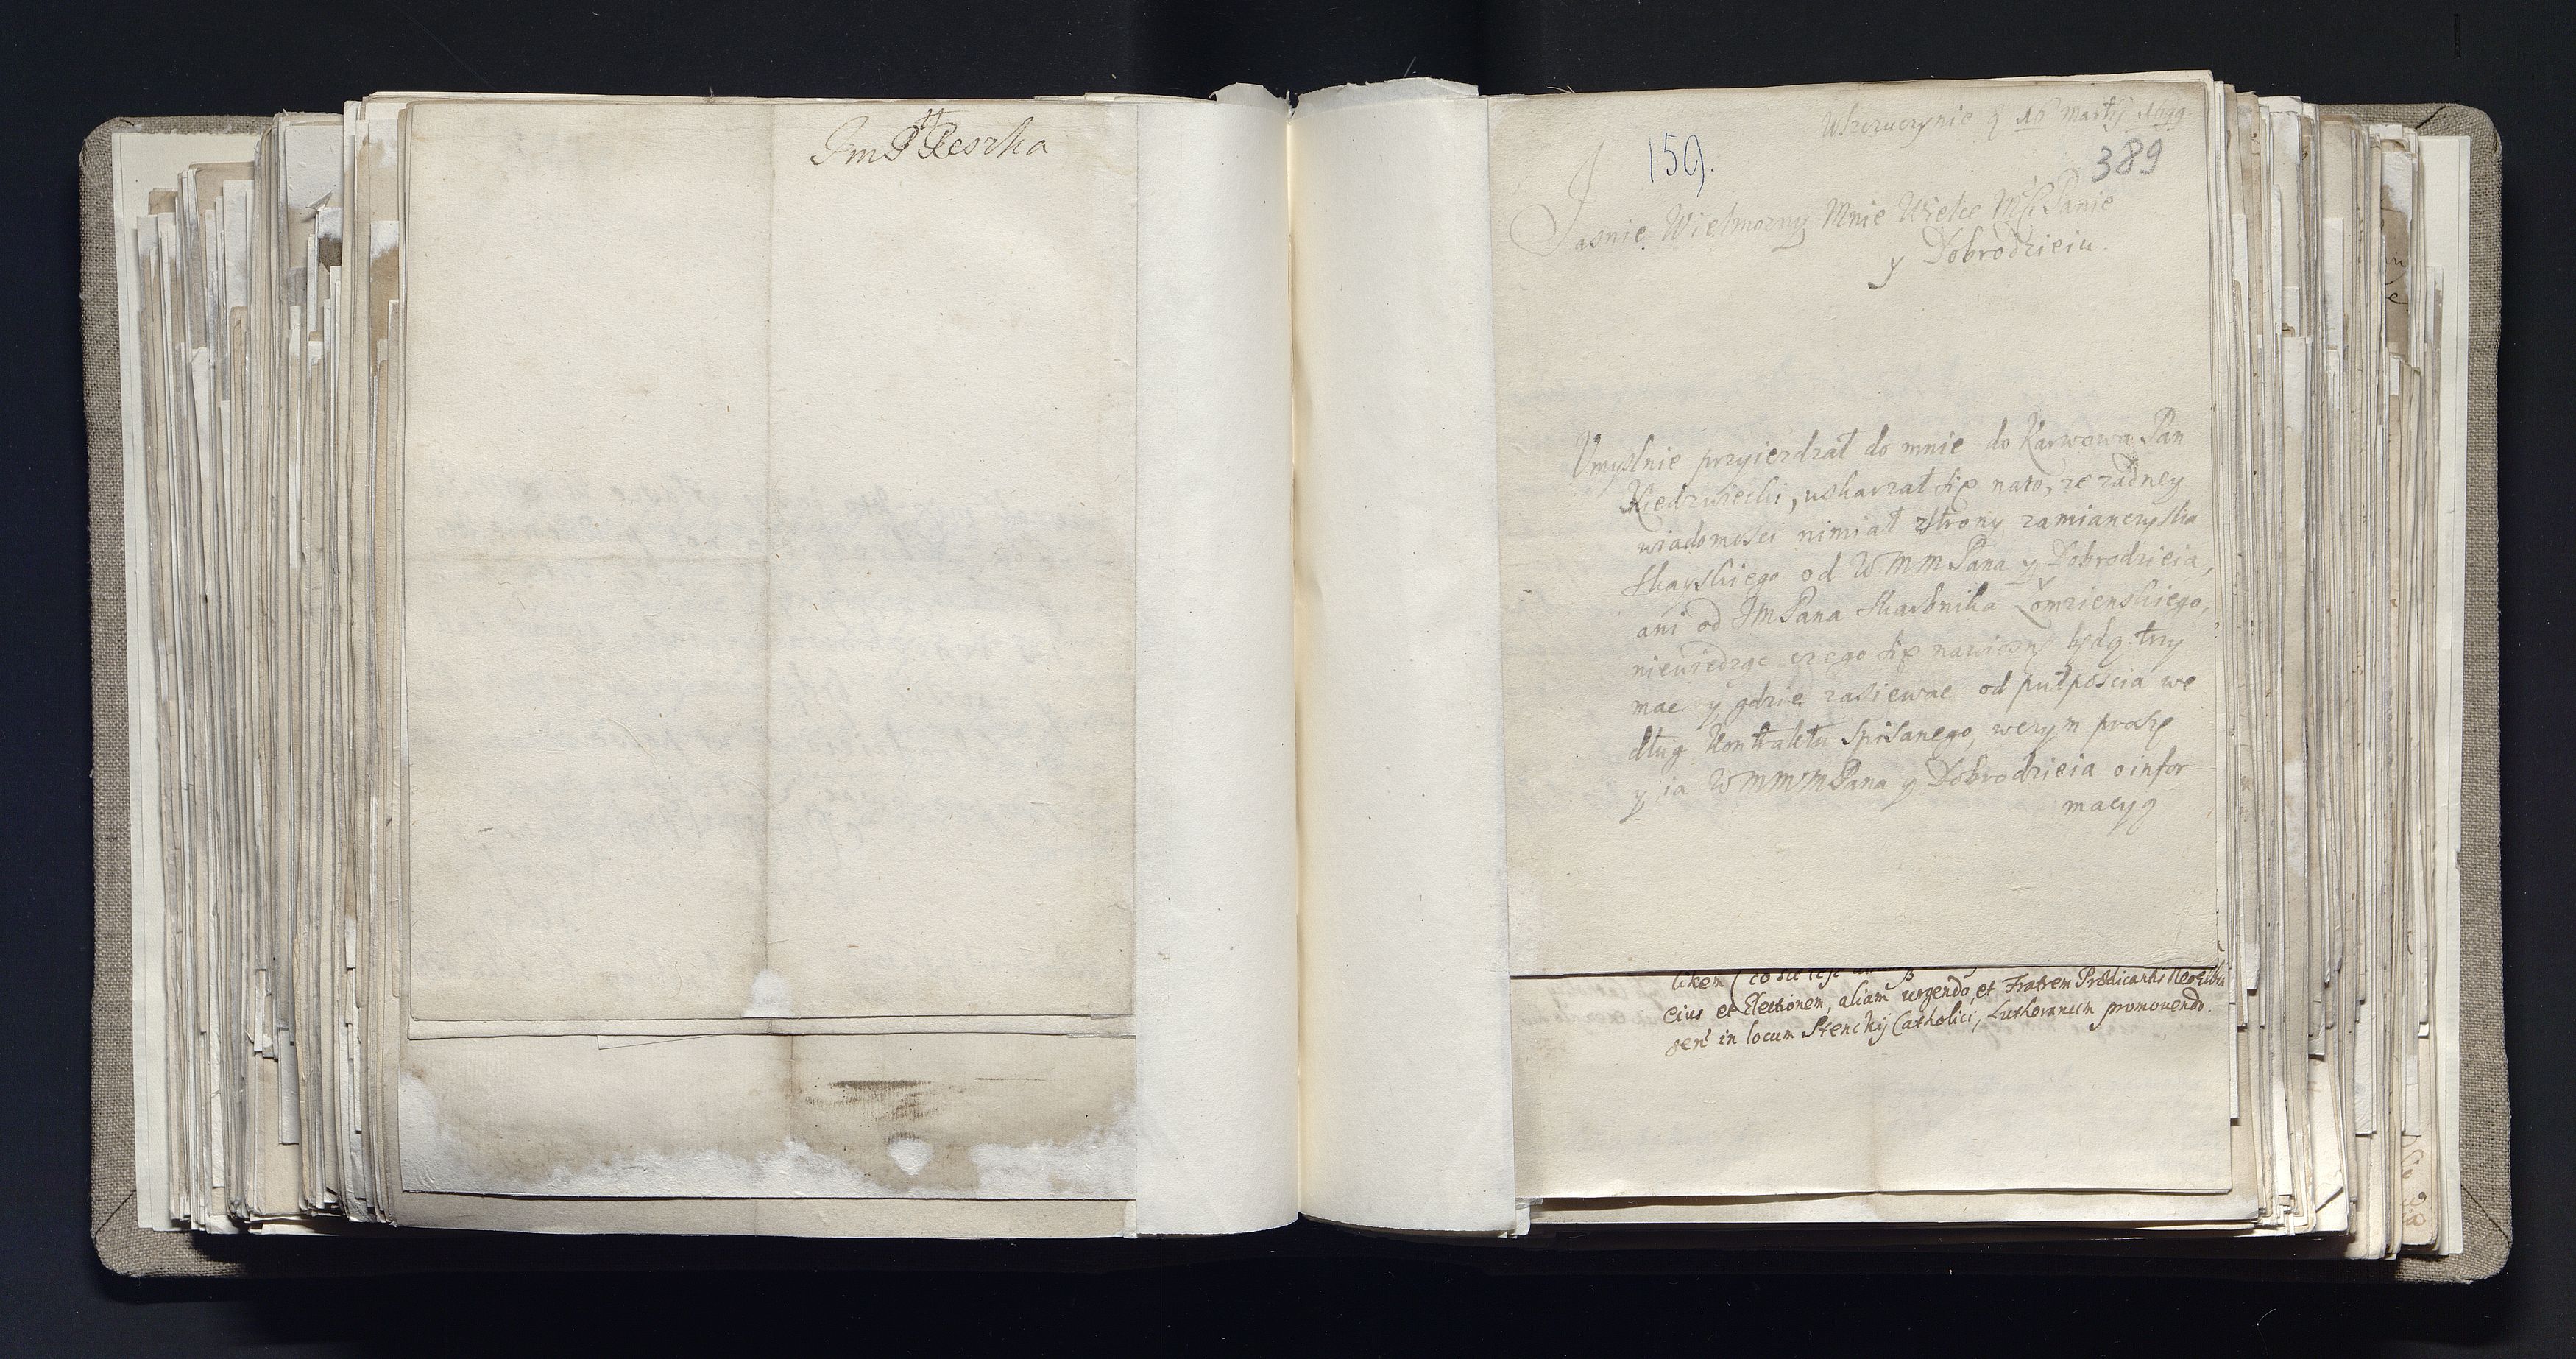 ImP Reszka
Wszczuczynie 16 Martij 1699.
159.
389
Jasnie Wielmozny Mnie Wielce Msć Panie
y Dobrodzieiu.
Vmyslnie przyiezdzał do mnie do Karwowa Pan
Niedzwiecki, uskarzał się nato, ze zadney
wiadomosci nimiał zstrony zamianczyska
skayskiego od WMMPana y Dobrodzieia,
ani od ImPana Skarbnika Łomzienskiego,
niewiedząc czego się nawiosnę będą trzy
mac y gdzie zasiewac od putposcia we
dług Kontraktu spisanego, wczym proszę
y ia WMMMPana y Dobrodzieia oinfor
macyą
eius et Electionem, aliam urgendo, et Fratrem Prædicantis
in locum Stenckij Catholici, Lutheranum promouendo.